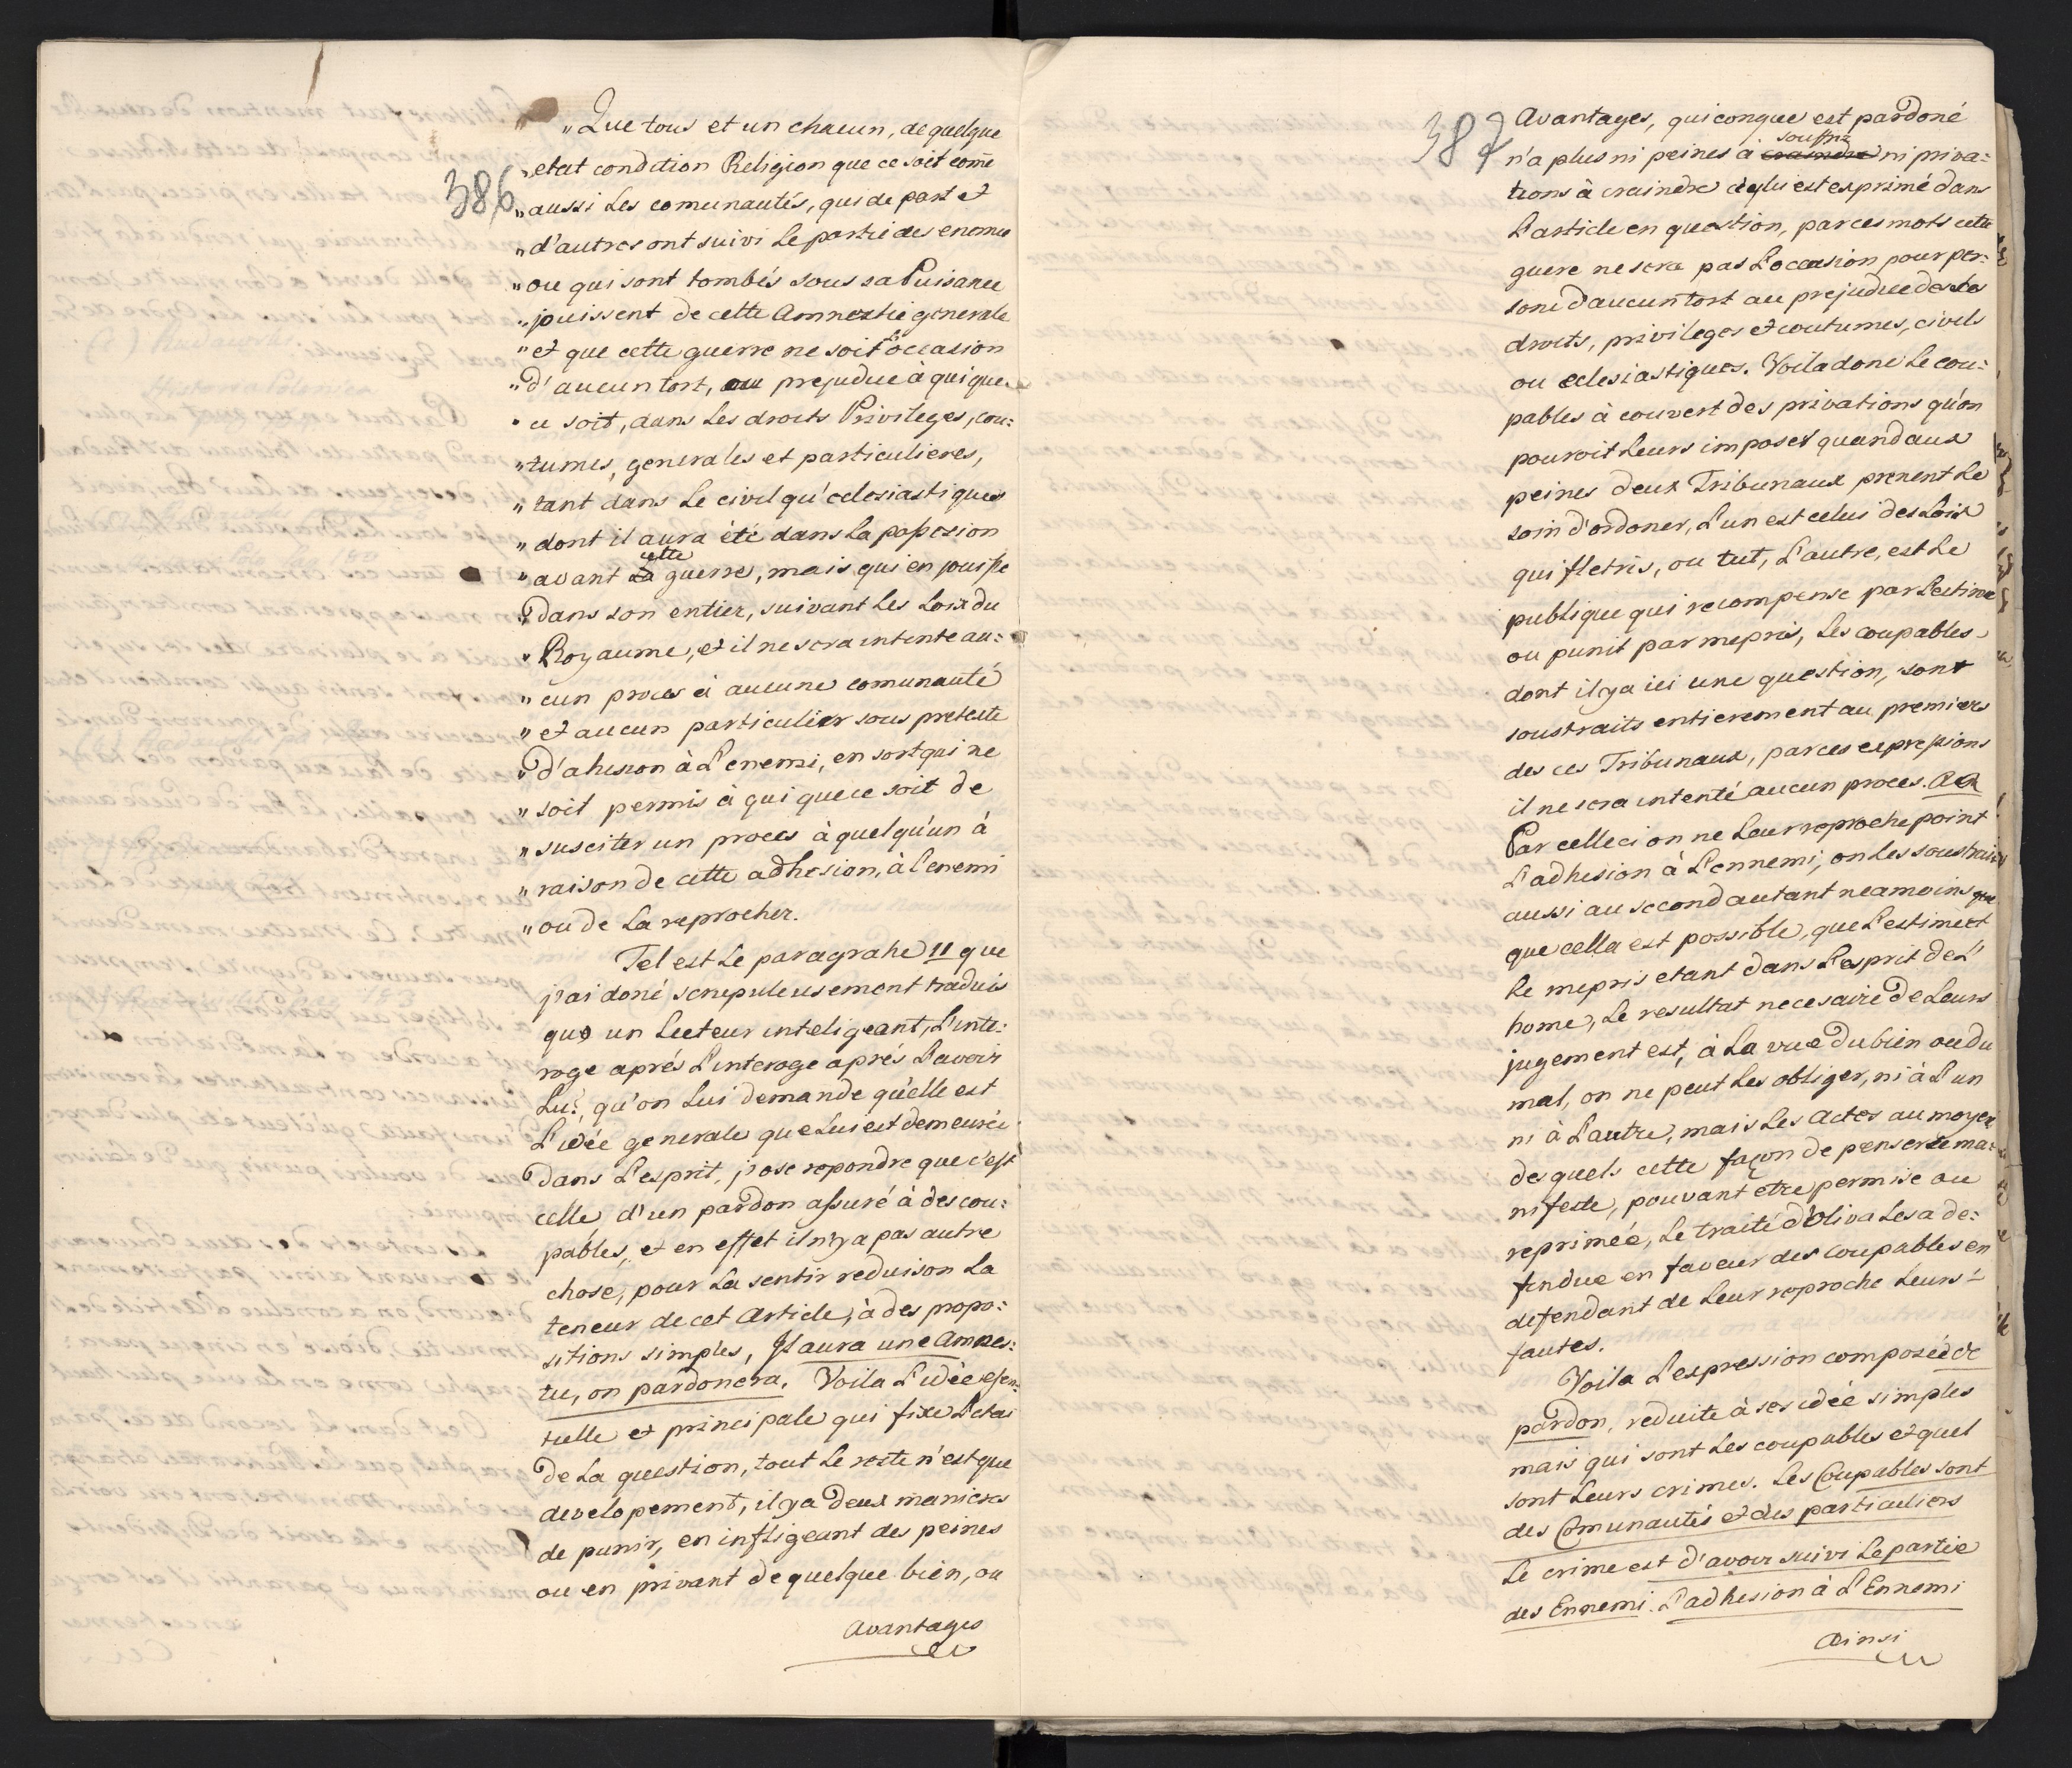 386
„ Que tous et un chacun, de quelque
„ etat condition Religion que ce soit come
„ aussi Les comunautés, qui de part et
„ d'autres ont suivi Le partie des enemie
„ ou qui sont tombés sous sa Puisance
„ jouissent de cette Amnestie generale
„ et que cette guerre ne soit l'occasion
„ d'aucun tort, ou prejudice à qui que
„ ce soit, dans Les droits Privileges, cou:
„ tumes, generales et particulieres,
„ tant dans Le civil qu'eclesiastiques
„ dont il aura été dans La possesion
„ avant La cette guerre, mais qui en jouisse
„ dans son entier, suivant Les Loix du
„ Royaume, et il ne sera intente au:
„ cun proces à aucune comunauté
„ et aucun particulier sous pretexte
„ d'ahesion à L'enemi, en sort qui ne
„ soit permis à qui que ce soit de
„ susciter un proces à quelqu'un à
„ raison de cette adhesion, à L'enemi
„ ou de La reprocher.
Tel est Le paragrahe 11 que
j'ai doné scrupuleusement traduis
que un Lecteur inteligeant, L'inte:
roge aprés L'interoge aprés L'avoir
Lu, qu'on Lui demande qu'elle est
L'idée generale que Lui est demeurée
Dans L'esprit, j'ose repondre que c'est
celle, d'un pardon assuré à des cou:
pables, et en effet il n'y a pas autre
chose, pour La sentir reduison La
teneur de cet Article, à des propo:
sitions simples, Il aura une Amnes:
tie, on pardonera. Voila L'idée essen:
tielle et principale qui fixe L'etat
De La question, tout Le reste n'est que
developement, il y a deux manieres
de punir, en infligeant des peines
ou en privant de quelque bien, ou
Avantages
387
Avantages, quiconque est pardoné
n'a plus ni peines à craindre souffrir ni priva:
tions à craindre ce qui est exprimé dans
L'article en question, par ces mots cette
guere ne sera pas L'occasion pour per:
sone d'aucun tort au prejudice de ses
droits, privileges et coutumes, civils
ou eclesiastiques. Voila donc Le cou:
pables à couvert des privations qu'on
pouroit Leurs imposer quand aux
peines deux Tribunaux prenent Le
soin d'ordoner, L'un est celui des Loix
qui fletris, ou tut, L'autre, est Le
publique qui recompense par L'estime
ou punit par mepris, Les coupables
dont il y a ici une question, sont
soustraits entierement au premiers
des ces Tribunaux, par ces expressions
il ne sera intenté aucun proces.
Par celle ci on ne Leur reproche point
L'adhesion à L'ennemi, on Les soustrait
aussi au second autant neamoins que
que cella est possible, que L'estime et
Le mepris etant dans L'esprit de L'
home, Le resultat necesaire de Leurs
jugement est, à La vue Du bien ou du
mal, on ne peut Les obliger, ni à L'un
ni à L'autre, mais Les Actes au moyen
desquels cette façon de penser se ma:
nifeste, pouvant etre permise ou
reprimée, Le traité d'Oliva Les a de:
fendue en faveur des coupables en
defendant de Leur reproche Leurs
fautes.
Voila L'expression composée de
pardon, reduite à ses idée simples
mais qui sont Les coupables et quel
sont Leurs crimes. Les Coupables sont
des Comunautés et des particuliers
Le crime est d'avoir suivi Le partie
des Ennemi. L'adhesion à L'Ennemi
Ainsi